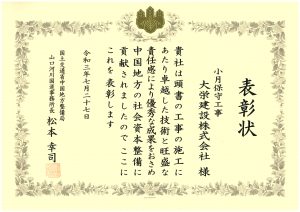 表彰状
小月保守工事
大栄建設株式会社 様
貴社は頭書の工事の施工に
あたり卓越した技術と旺盛な
責任感により優秀な成果をおさめ
中国地方の社会資本整備に
貢献されましたのでここに
これを表彰します
令和三年七月二十七日
国土交通省中国地方整備局
山口河川国道事務所長 松本 幸司